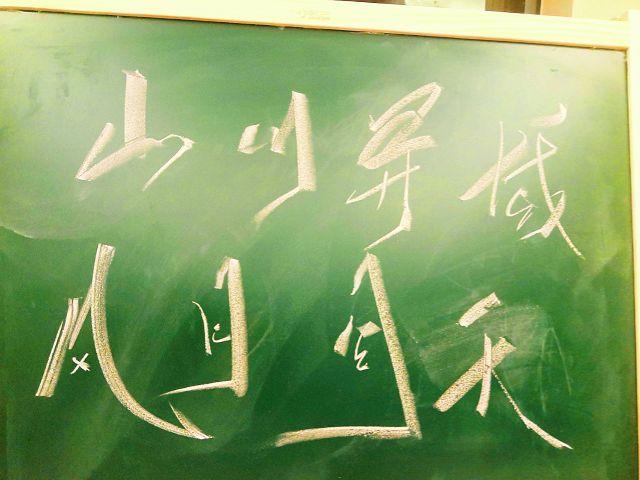 山川异域
风月同天